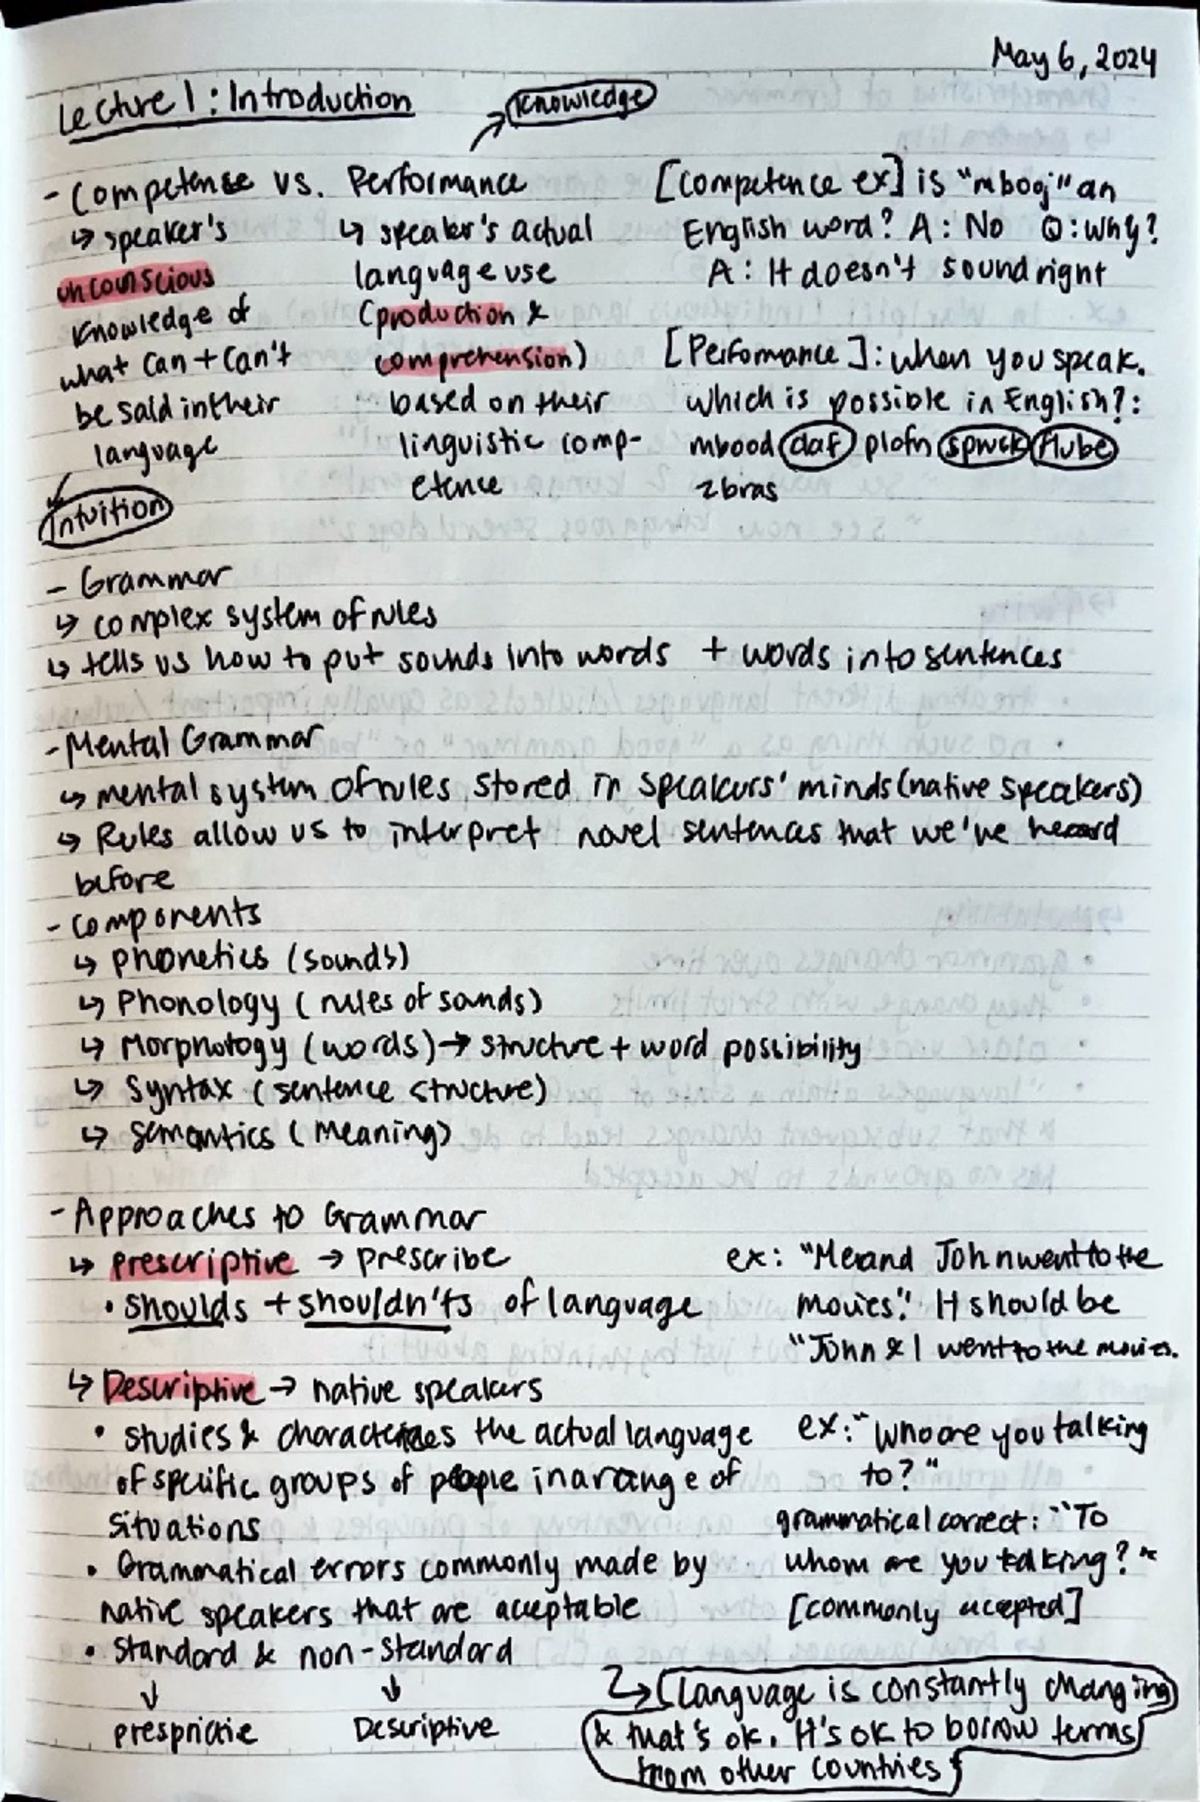 May 6, 2024
Lecture 1: Introduction
Knowledge
- Competense vs. Performance
↳ speaker's
unconscious
knowledge of
what can + can't
be said in their
language
Intuition
↳ speaker's actual
language use
(production &
comprehension)
based on their
linguistic comp-
etence
[Competence ex] is "mbooj" an
English word? A: No Q: Why?
A: It doesn't sound right
[Performance]: when you speak.
Which is possible in English?:
mbood daf plofn spwck flube
zbras
- Grammar
↳ complex system of rules
↳ tells us how to put sounds into words + words into sentences
- Mental Grammar
↳ mental system of rules stored in speakers' minds (native speakers)
↳ Rules allow us to interpret novel sentences that we've heard
before
- Components
↳ Phonetics (sounds)
↳ Phonology (rules of sounds)
↳ Morphology (words) → structure + word possibility
↳ Syntax (sentence structure)
↳ Semantics (Meaning)
- Approaches to Grammar
↳ Prescriptive → Prescribe
• shoulds + shouldn'ts of language
ex: "Me and John went to the
movies". It should be
"John & I went to the movies.
↳ Descriptive → native speakers
• studies & characterizes the actual language
of specific groups of people in a range of
situations
• Grammatical errors commonly made by
native speakers that are acceptable
• Standard & non-standard
↓ ↓
Presprictie Descriptive
ex: "Who are you talking
to?"
grammatical correct: "To
whom are you talking?"
[commonly accepted]
↳ Language is constantly changing
& that's ok. It's ok to borrow terms
from other countries